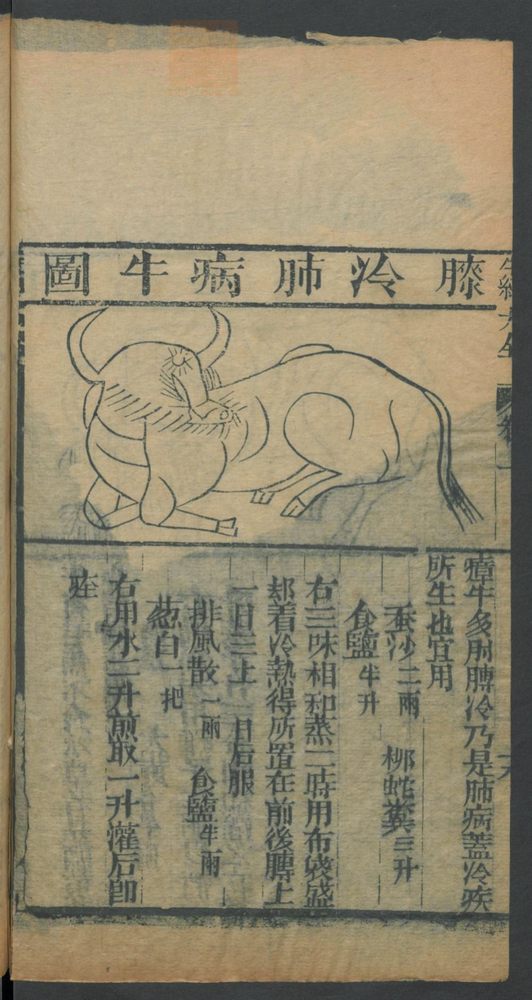 膝冷肺病牛圖
瘴牛多肘膊冷乃是肺病蓋冷疾
所生也宜用
蚕沙二兩 柳蛀糞三升
食鹽半升
右三味相和蒸一時用布袋盛
却着冷熱得所置在前後膊上
一日三上 日后服
排風散一兩 食鹽半兩
葱白一把
右用水三升煎取一升灌后卽
痊